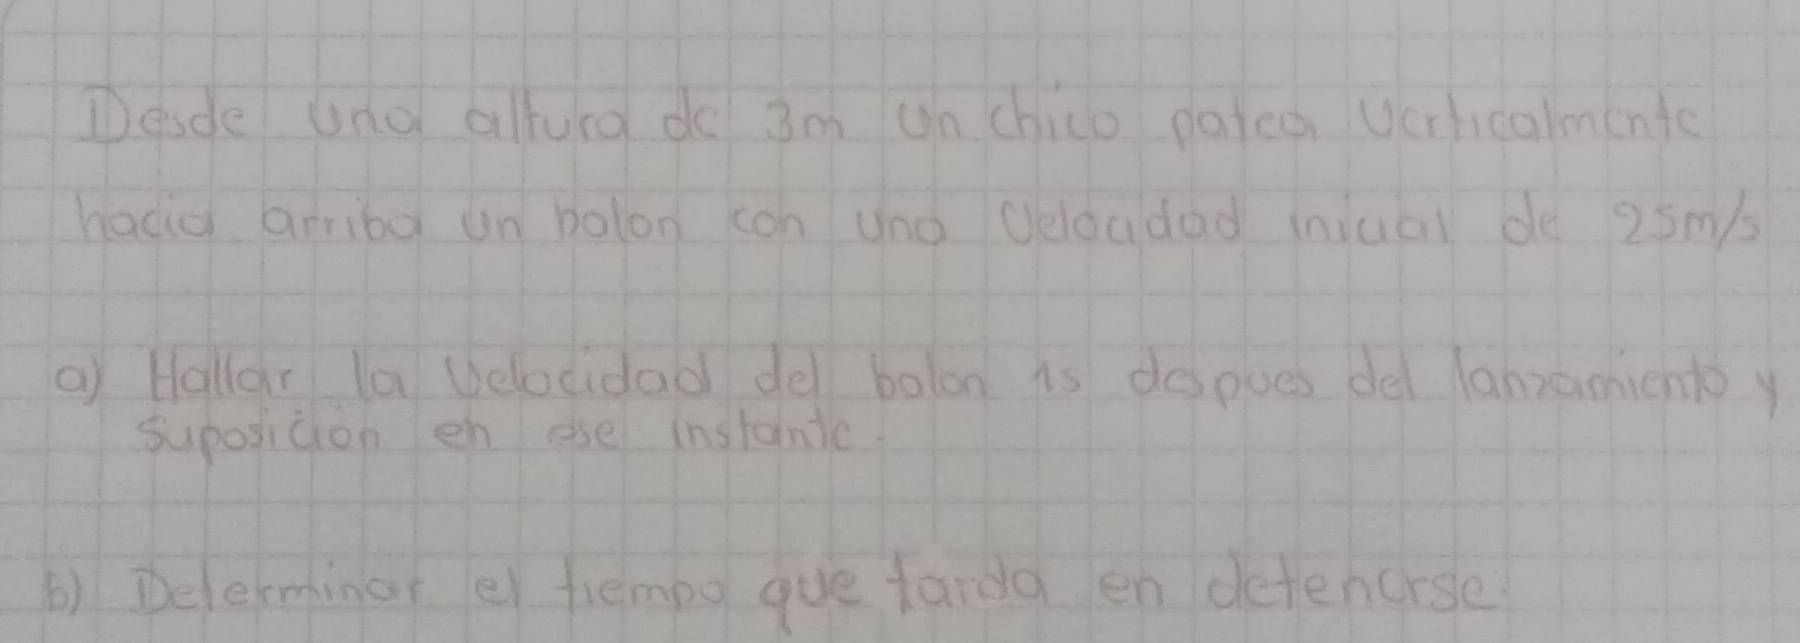 Desde una altura de 3m un chico patea verticalmente
hacia arriba un balon con una velocidad inicial de 25m/s
a) Hallar la velocidad del balon 1s despues del lanzamiento y
suposicion en ese instante.
b) Determinar el tiempo que tarda en detenerse